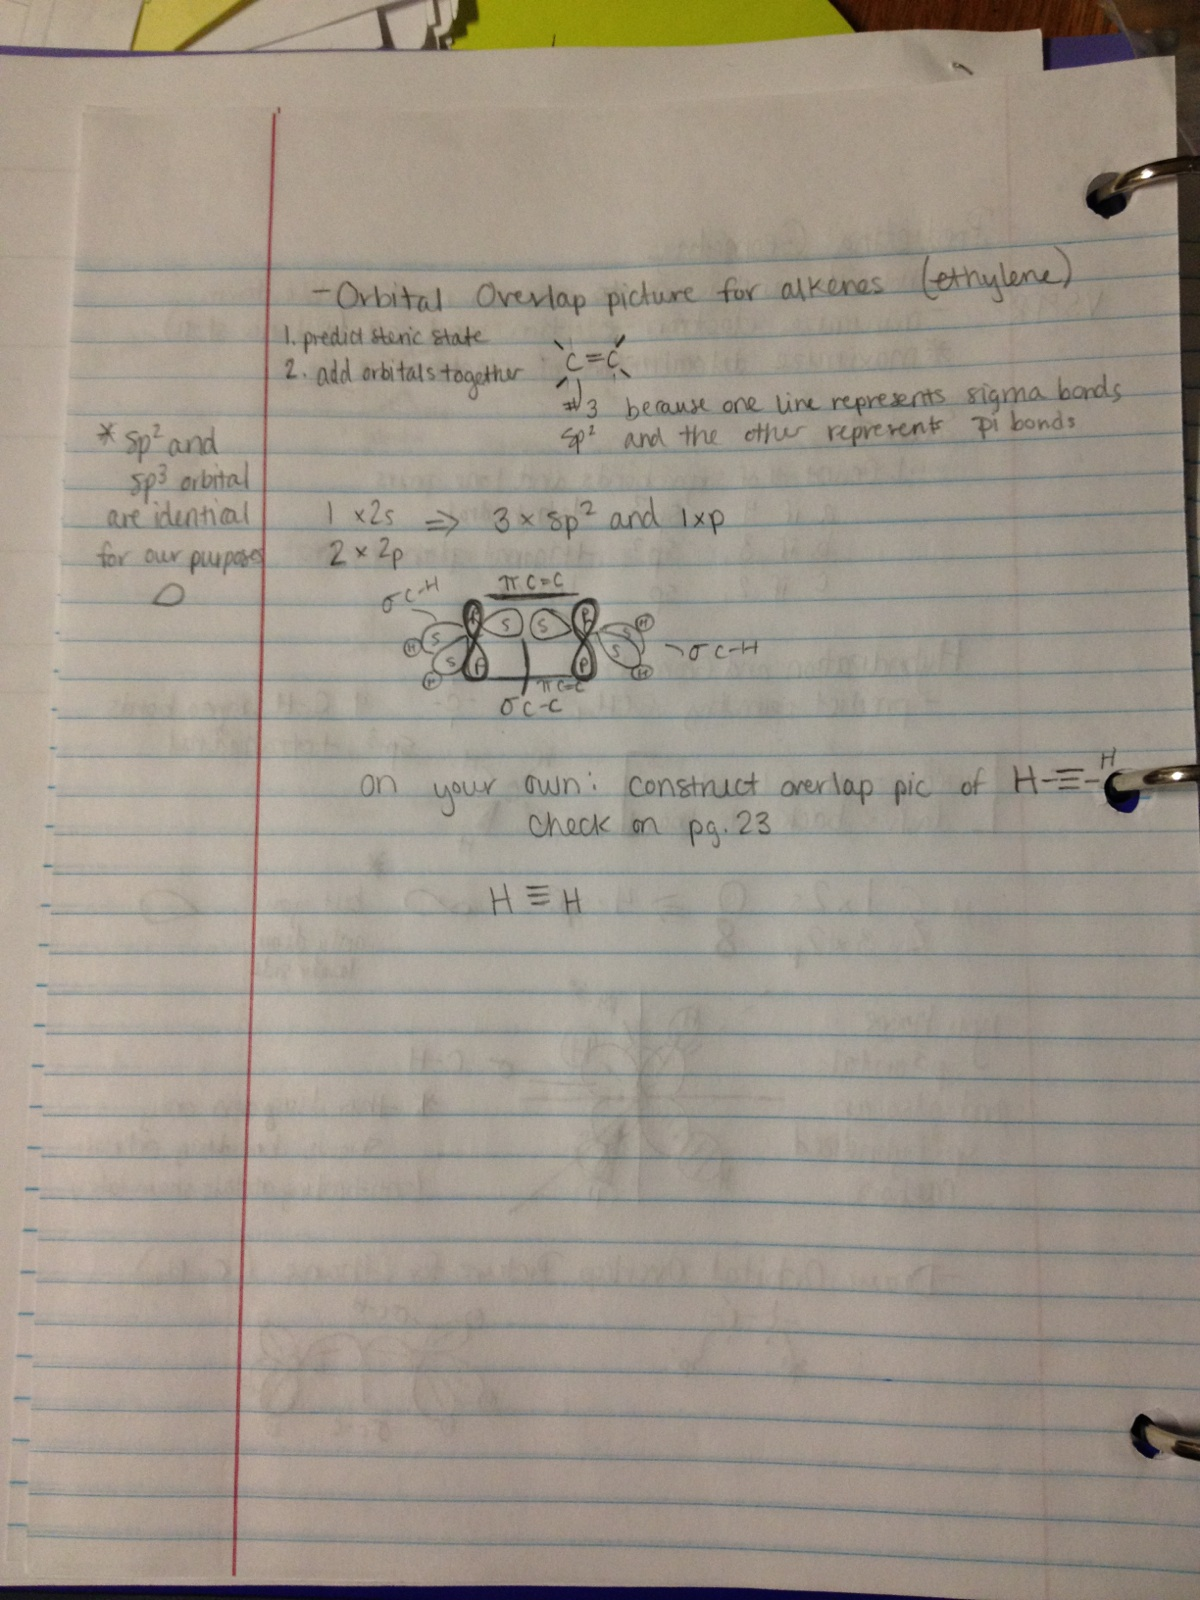 - Orbital Overlap picture for alkenes (ethylene)
1. predict steric state
2. add orbitals together
C=C
#3 because one line represents sigma bonds
sp² and the other represents pi bonds
* sp² and
sp³ orbital
are identical
for our purposes
1 x 2s ⇒ 3 x sp² and 1xp
2 x 2p
π C=C
σ C-H
P S S P
H S S H
S P P S
H H
σ C-H
π C=C
σ C-C
on your own: construct overlap pic of H-≡-H
check on pg. 23
H ≡ H